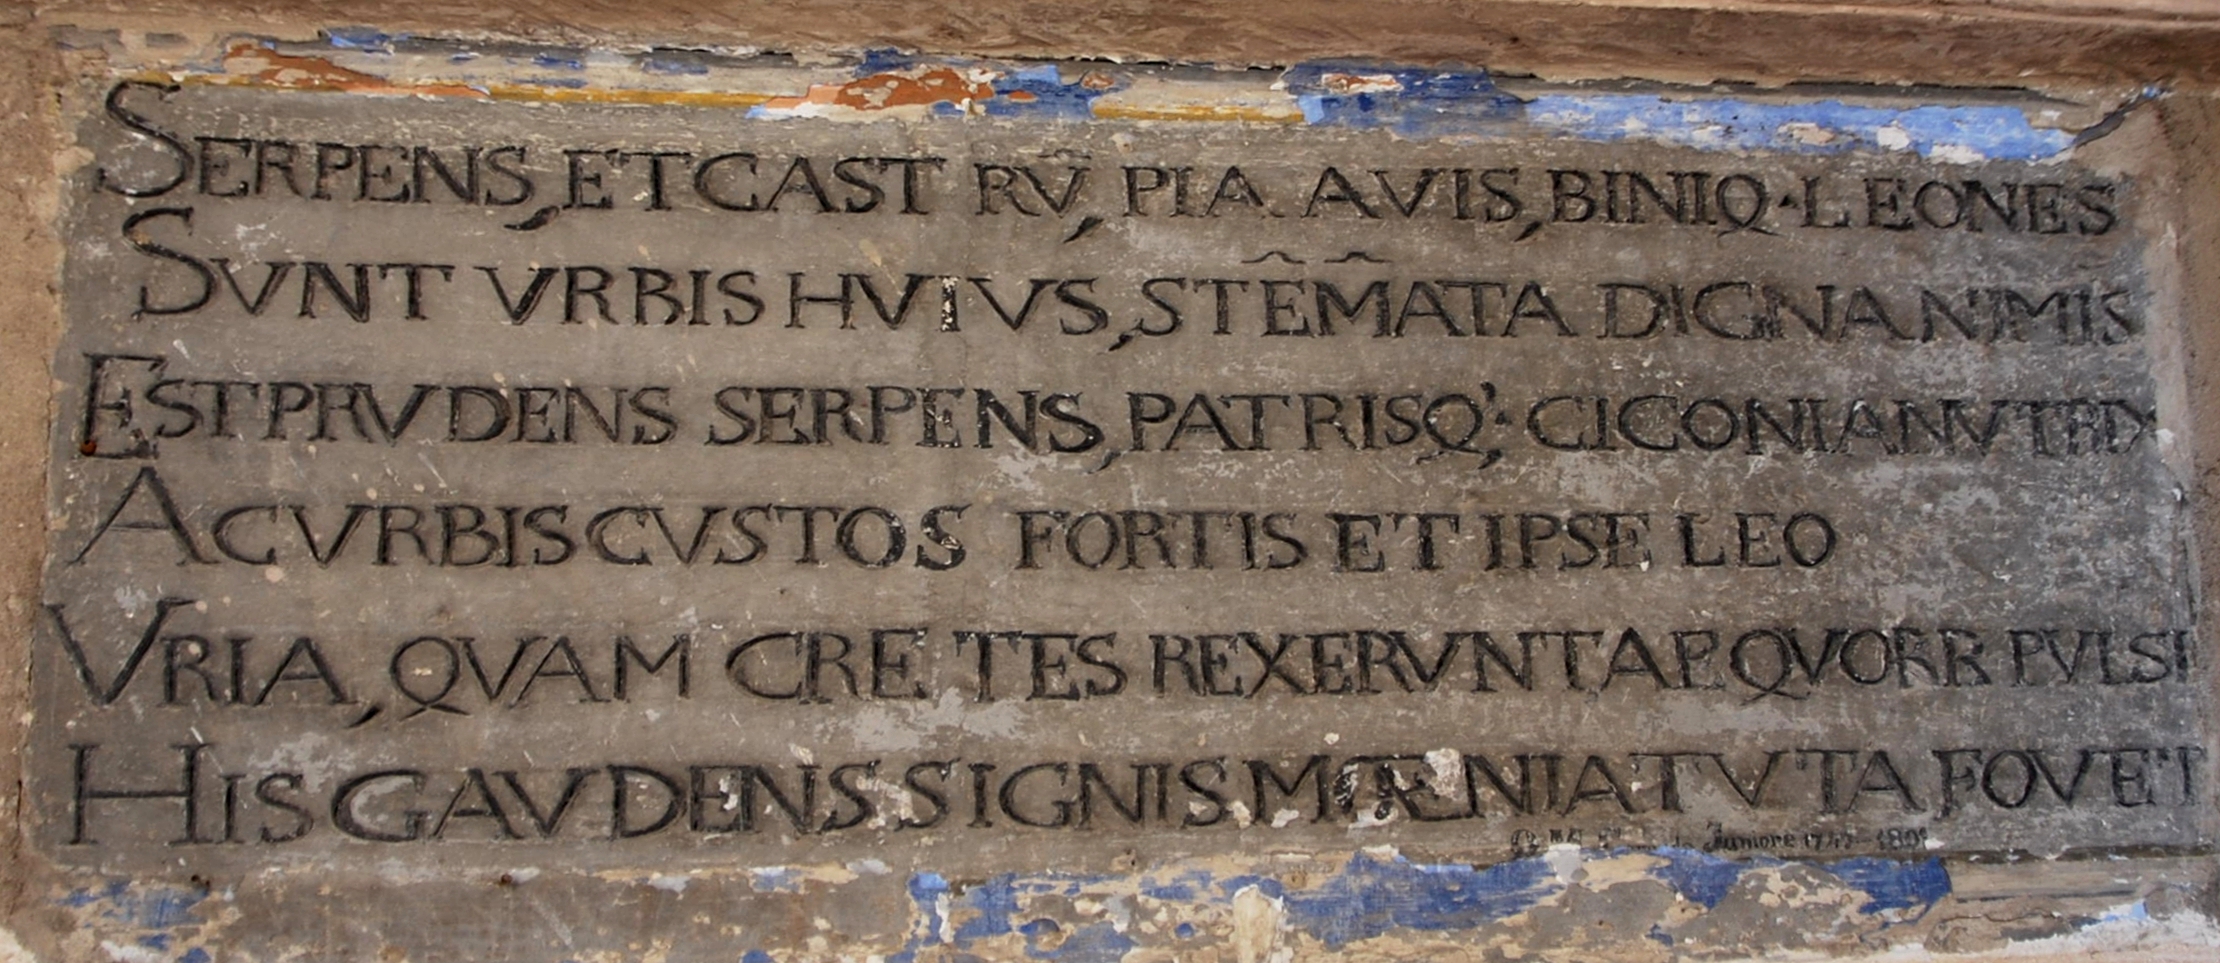 SERPENS, ET CASTRV̄, PIA AVIS, BINIQ· LEONES
SVNT VRBIS HVIVS, STĒM̄ATA DIGNA NIMIS
EST PRVDENS SERPENS, PATRISQ'; CICONIA NVTRIX
AC VRBIS CVSTOS FORTIS ET IPSE LEO
VRIA, QVAM CRETES REXERVNT AEQVORE PVLSI
HIS GAVDENS SIGNIS MÆNIA TVTA FOVET
Juniore